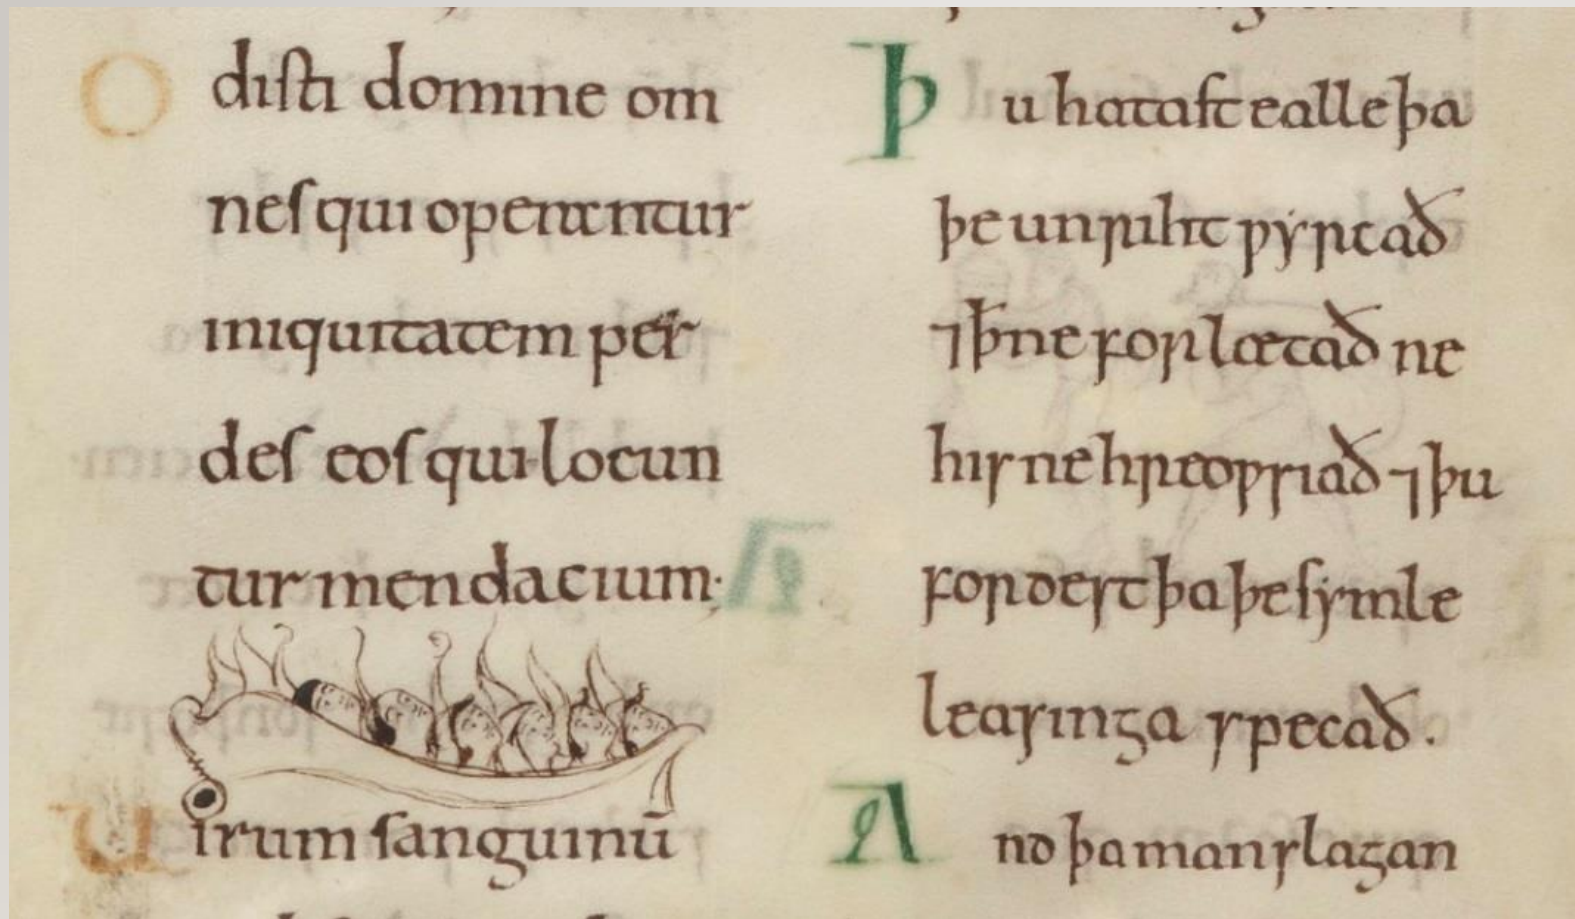 Odisti domine om
nes qui operantur
iniquitatem per
des eos qui locun
tur mendacium·
Uirum sanguinū
Þu hatast ealle þa
þe unriht ƿyrcað
⁊ þ̵ ne forlætað ne
his ne hreoƿsiað ⁊ þu
fordest þa þe symle
leasinga specað.
And þa manslagan